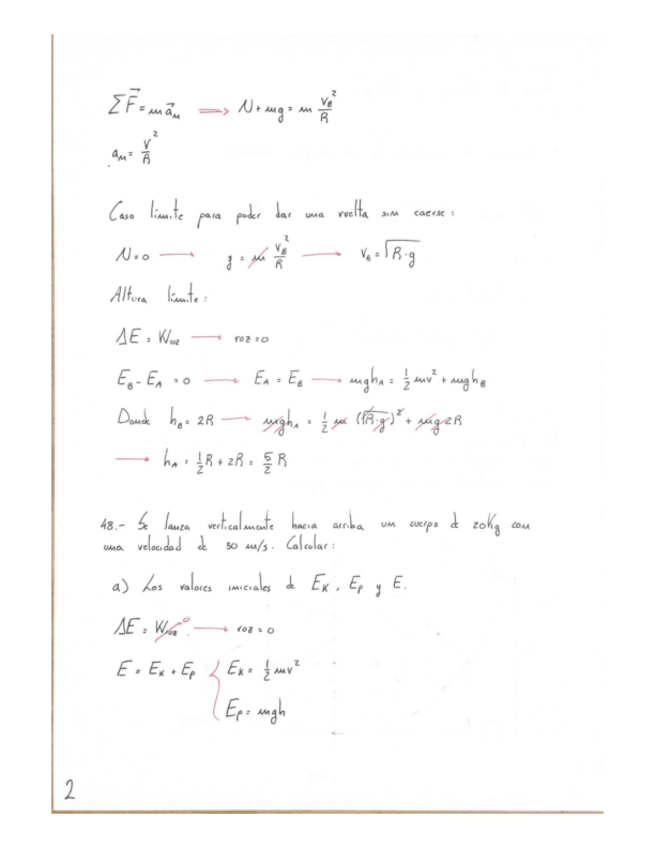 ΣF⃗ = m a⃗ₙ ⟹ N + mg = m v_B²/R
aₙ = v²/R
Caso límite para poder dar una vuelta sin caerse:
N = 0 ⟶ g = m v_B²/R ⟶ v_B = √(R·g)
Altura límite:
ΔE = W_roz ⟶ roz = 0
E_B - E_A = 0 ⟶ E_A = E_B ⟶ mgh_A = 1/2 mv² + mgh_B
Donde h_B = 2R ⟶ mgh_A = 1/2 m (√(R·g))² + mg2R
⟶ h_A = 1/2 R + 2R = 5/2 R
48.- Se lanza verticalmente hacia arriba un cuerpo d 20Kg con
una velocidad d 50 m/s. Calcular:
a) Los valores iniciales d E_K, E_P y E.
ΔE = W_roz 0 ⟶ roz = 0
E = E_K + E_P { E_K = 1/2 mv²
E_P = mgh
2